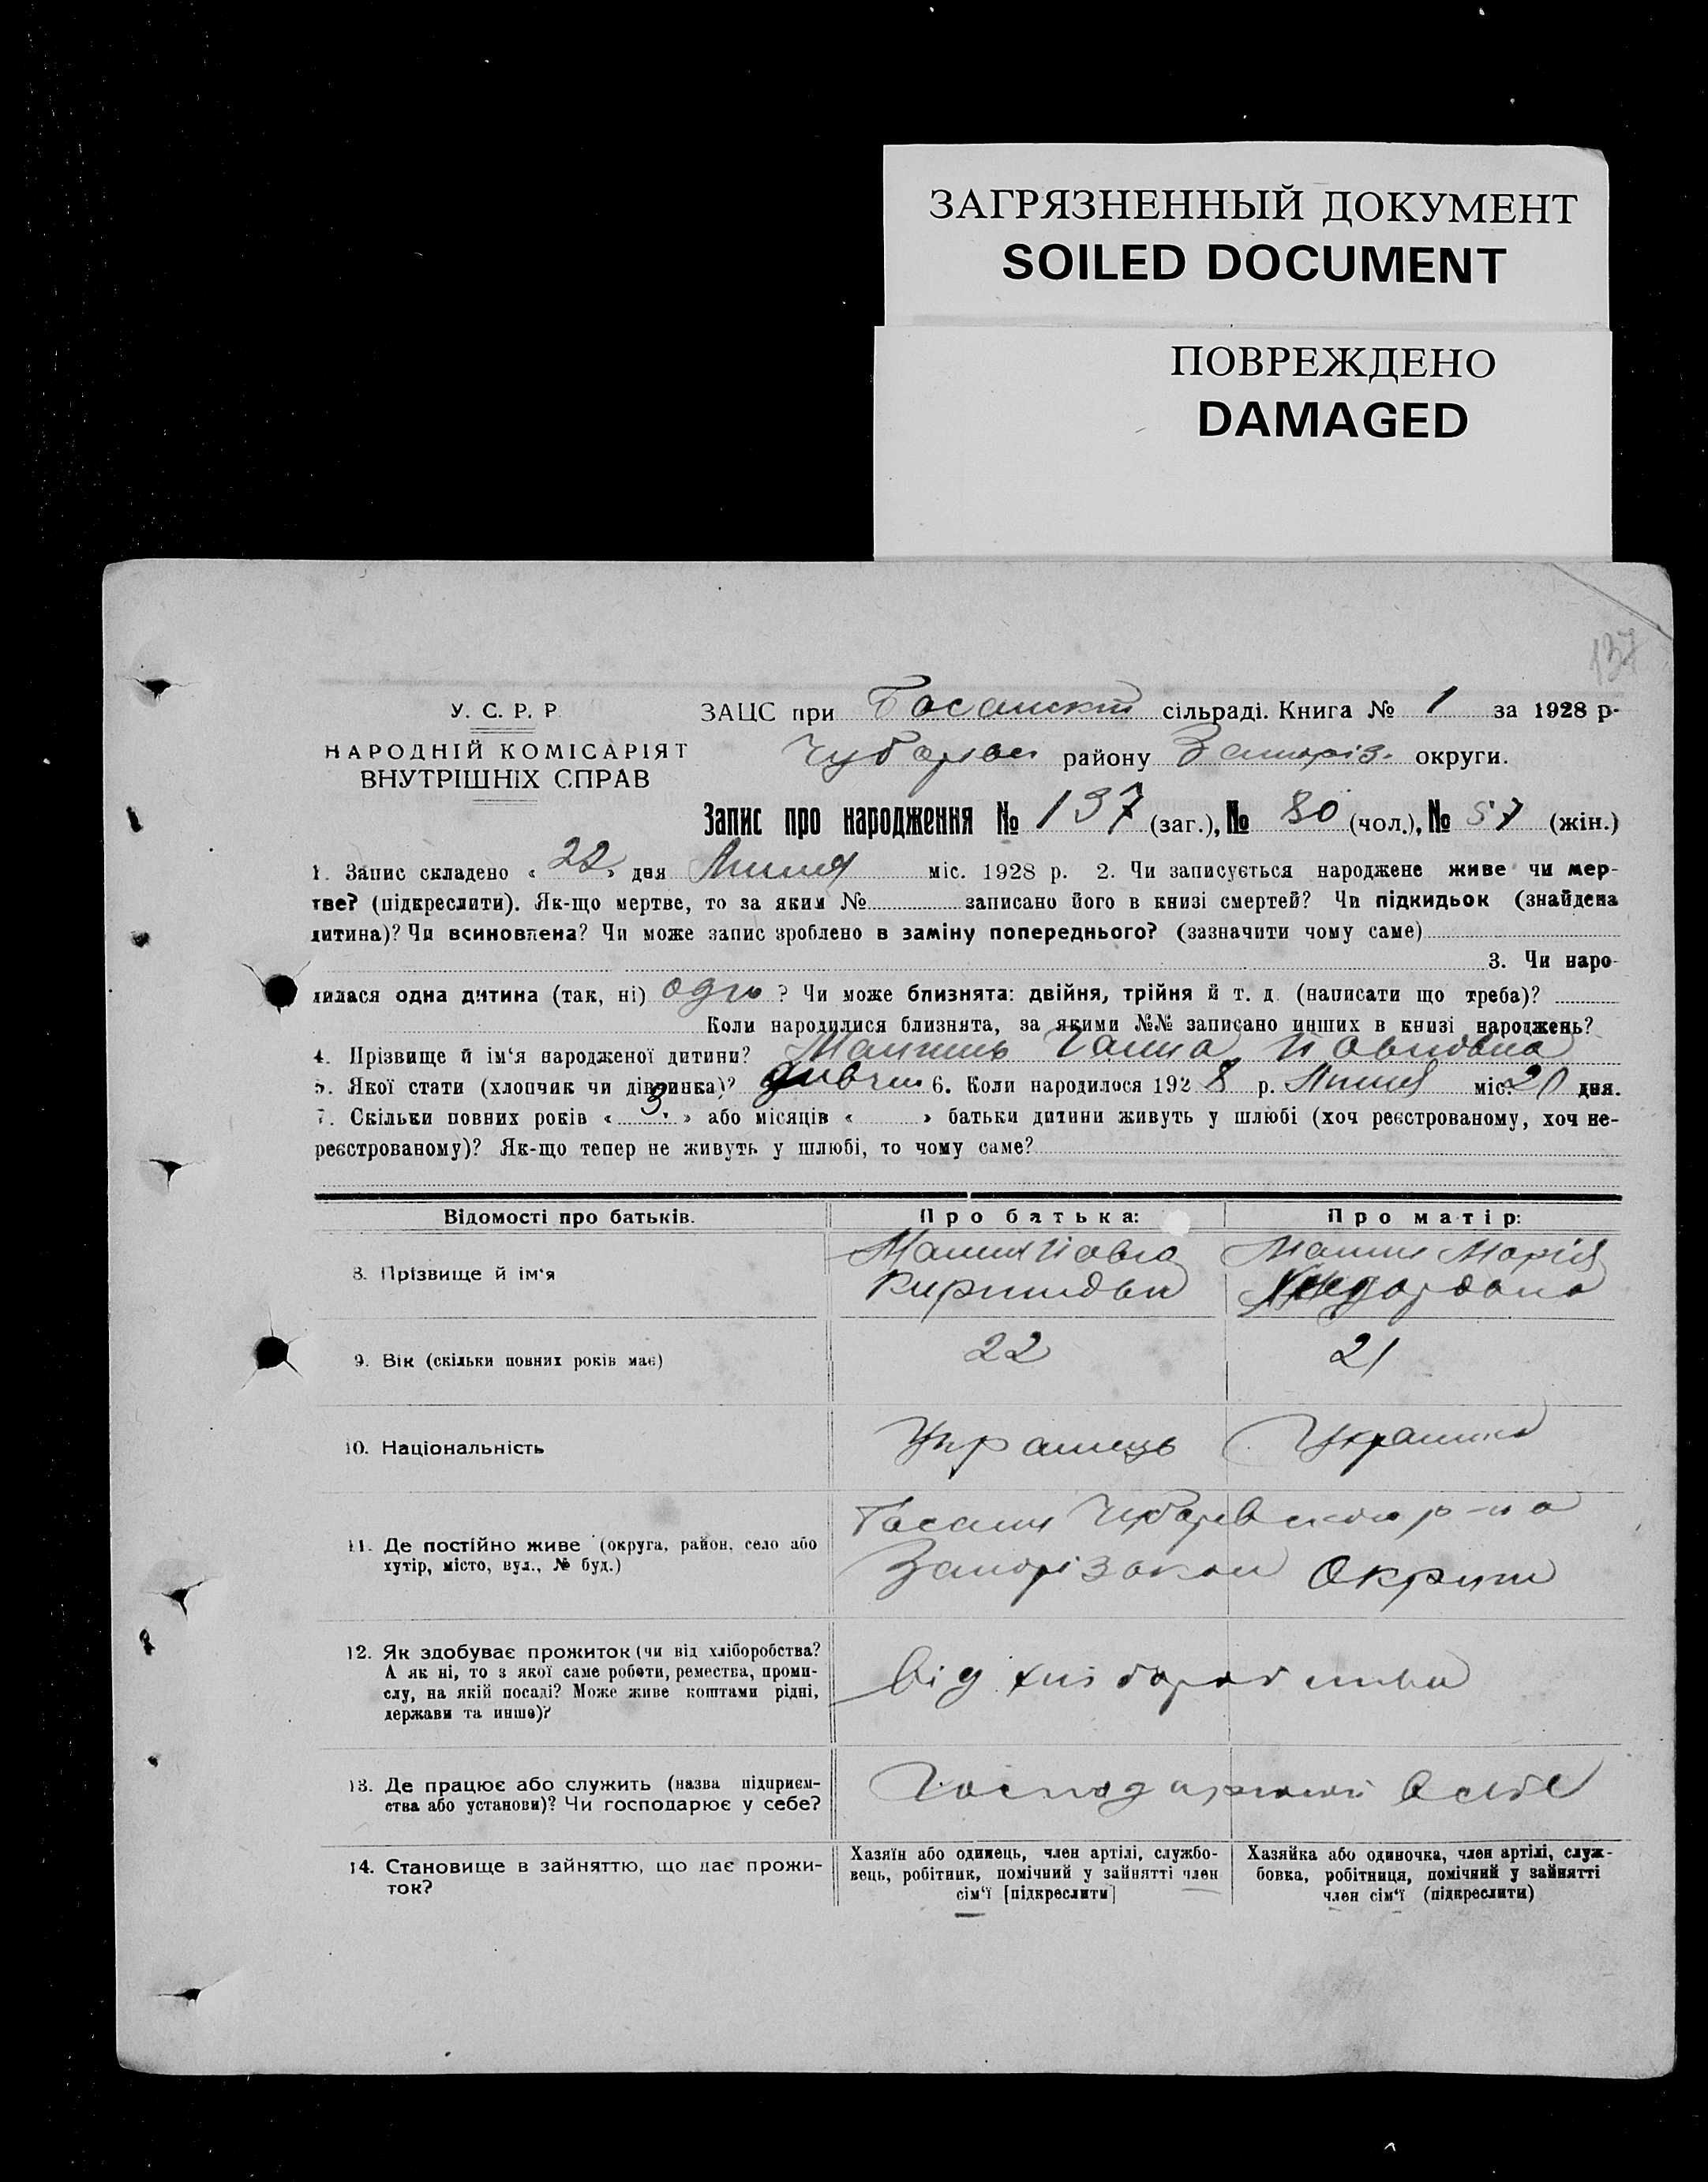 ЗАГРЯЗНЕННЫЙ ДОКУМЕНТ
SOILED DOCUMENT
ПОВРЕЖДЕНО
DAMAGED
137
У. С. Р. Р
НАРОДНІЙ КОМІСАРІЯТ
ВНУТРІШНІХ СПРАВ
ЗАЦС при Басанскій сільраді. Книга № 1 за 1928 р-
Чубарівськ району Запоріз. округи.
Запис про народження № 137 (заг.), № 80 (чол.), № 57 (жін.)
1. Запис складено « 22 » дня Липня міс. 1928 р. 2. Чи записується народжене живе чи мер-
тве? (підкреслити). Як-що мертве, то за яким № записано його в книзі смертей? Чи підкидьок (знайдена
дитина)? Чи всиновлена? Чи може запис зроблено в заміну попереднього? (зазначити чому саме)
3. Чи наро-
дилася одна дитина (так, ні) одно ? Чи може близнята: двійня, трійня й т. д (написати що треба)?
Коли народилися близнята, за якими №№ записано инших в книзі народжень?
4. Прізвище й ім'я народженої дитини? Ганна Павловна
5. Якої статі (хлопчик чи дівчинка)? дивчин 6. Коли народилося 1928 р. Липня міс. 20 дня.
7. Скільки повних років « 3 » або місяців « » батьки дитини живуть у шлюбі (хоч реєстрованому, хоч не-
реєстрованому)? Як-що тепер не живуть у шлюбі, то чому саме?
Відомості про батьків. Про батька: Про матір:
8. Прізвище й ім'я Павло Марія
Кирилови
9. Вік (скільки повних років має) 22 21
10. Національність Українець Українка
11. Де постійно живе (округа, район, село або
хутір, місто, вул., № буд.)
Басань Чубарівского р-на
Запорізской Округи
12. Як здобуває прожиток (чи від хліборобства?
А як ні, то з якої саме роботи, ремества, проми-
слу, на якій посаді? Може живе коштами рідні,
держави та инше)?
від хліборобства
13. Де працює або служить (назва підприєм-
ства або установи)? Чи господарює у себе?
в себе
14. Становище в зайняттю, що дає прожи-
ток?
Хазяїн або одинець, член артілі, службо-
вець, робітник, помічний у зайнятті член
сім'ї [підкреслити]
Хазяйка або одиночка, член артілі, служ-
бовка, робітниця, помічний у зайнятті
член сім'ї (підкреслити)